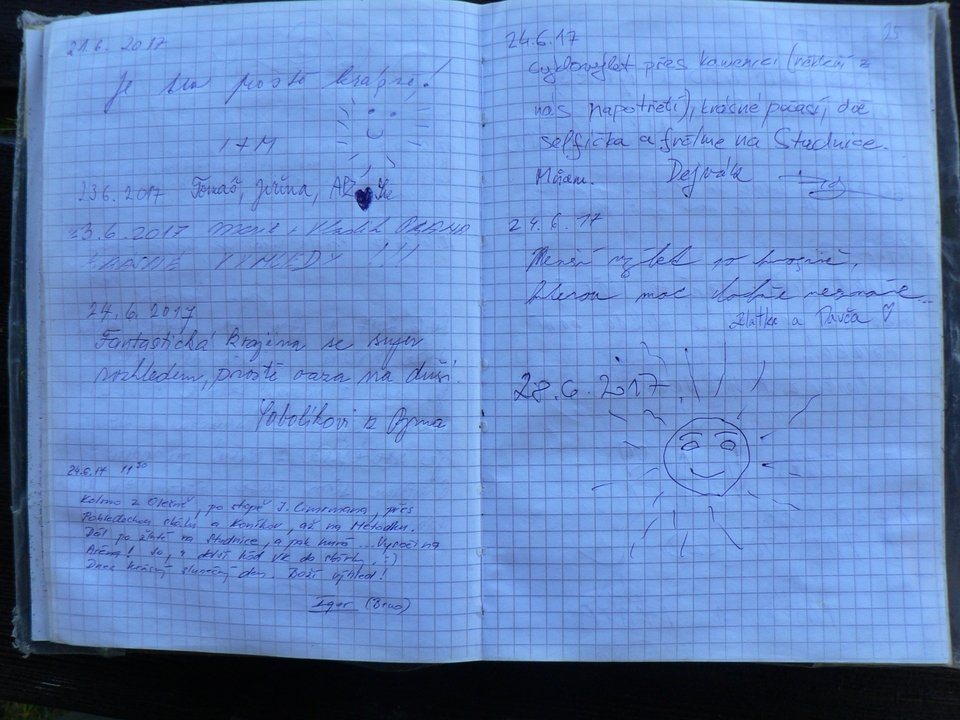 21.6. 2017
Je tu prostě krásně!
J+M
23.6. 2017 Tomáš, Jiřina,
23.6.2017 Marie + Vladek PRAHA
KRÁSNÉ VÝHLEDY !!!
24.6. 2017
Fantastická krajina se super
rozhledem, prostě oáza na duši.
Sobolíkovi z Brna
24.6.17 11 30
Kolmo z Olešné, po stopě J. Cimrmana, přes
Pohledeckou skálu a Koníkov, až na
Dál po žluté na Studnice, a pak hurá ... Vysočina
Aréna! do sbírky :-)
Dnes krásný slunečný den. Boží výhled!
Igor (Brno)
25
24.6.17
cyklovýlet přes kamenici (někteří z
nás napotřetí), krásné počasí, dvě
selfíčka a frčíme na Studnice.
Mňam. Dejvák
24.6.17
Menší výlet po krajině,
kterou moc dobře neznáme...
Zlatka a Pavča ♡
28.6.2017